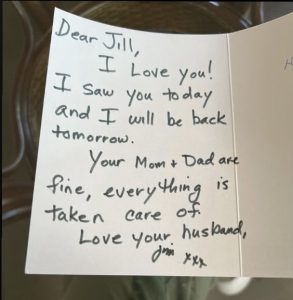 Dear Jill,
I Love you!
I saw you today
and I will be back
tomorrow.
Your Mom + Dad are
fine, everything is
taken care of.
Love your husband,
Jim xxx